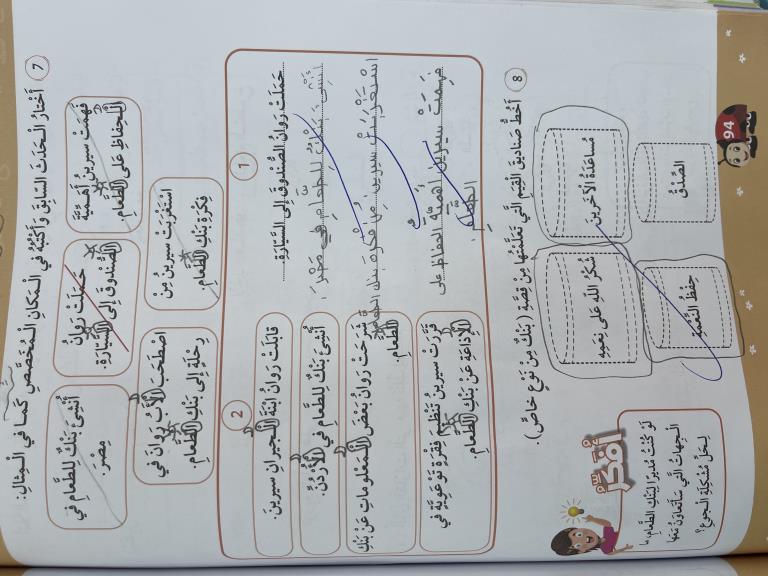 7
أَخْتَارُ الْحَدَثَ السَّابِقَ وَأَكْتُبُهُ في الْمَكانِ الْمُخَصَّصِ كَما في الْمِثالِ:
فَهِمَتْ سيرينُ أَهَمِّيَّةَ
الْحِفاظِ عَلى الطَّعامِ.
حَمَلَتْ رَوانُ
الصُّنْدوقَ إِلى السَّيّارَةِ.
أُنْشِئَ بَنْكٌ لِلطَّعامِ في
مِصْرَ.
اسْتَغْرَبَتْ سيرينُ مِنْ
فِكْرَةِ بَنْكِ الطَّعامِ.
اصْطَحَبَ الْأَبُ رَوانَ في
رِحْلَةٍ إِلى بَنْكِ الطَّعامِ.
1
حَمَلَتْ رَوانُ الصُّنْدوقَ إِلى السَّيّارَةِ.
أُنْشِئَ بَنْكٌ للطعام في مصر.
استغربت سيرين من فكرة بنك الطعام
فهمت سيرين أهمية الحفاظ على
الطعام.
2
قابَلَتْ رَوانُ ابْنَةَ الْجيرانِ سيرينَ.
أُنْشِئَ بَنْكٌ لِلطَّعامِ في الْأُرْدُنِّ.
شَرَحَتْ رَوانُ بَعْضَ الْمَعْلوماتِ عَنْ بَنْكِ
الطَّعامِ.
قَرَّرَتْ سيرينُ تَنْظيمَ فِقْرَةٍ تَوْعَوِيَّةٍ في
الْإِذاعَةِ عَنْ بَنْكِ الطَّعامِ.
8
أَخُطُّ صَناديقَ الْقِيَمِ الَّتي تَعَلَّمْتُها مِنْ قِصَّةِ (بَنْكٌ مِنْ نَوْعٍ خاصٍّ).
مُساعَدَةُ الْآخَرينَ
شُكْرُ اللهِ عَلى نِعَمِهِ
الصِّدْقُ
حِفْظُ النِّعْمَةِ
أُفَكِّرُ
لَوْ كُنْتُ مُديرًا لِبَنْكِ الطَّعامِ، ما
الْجِهاتُ الَّتي سَأَتَعاوَنُ مَعَها
لِحَلِّ مُشْكِلَةِ الْجوعِ؟
94